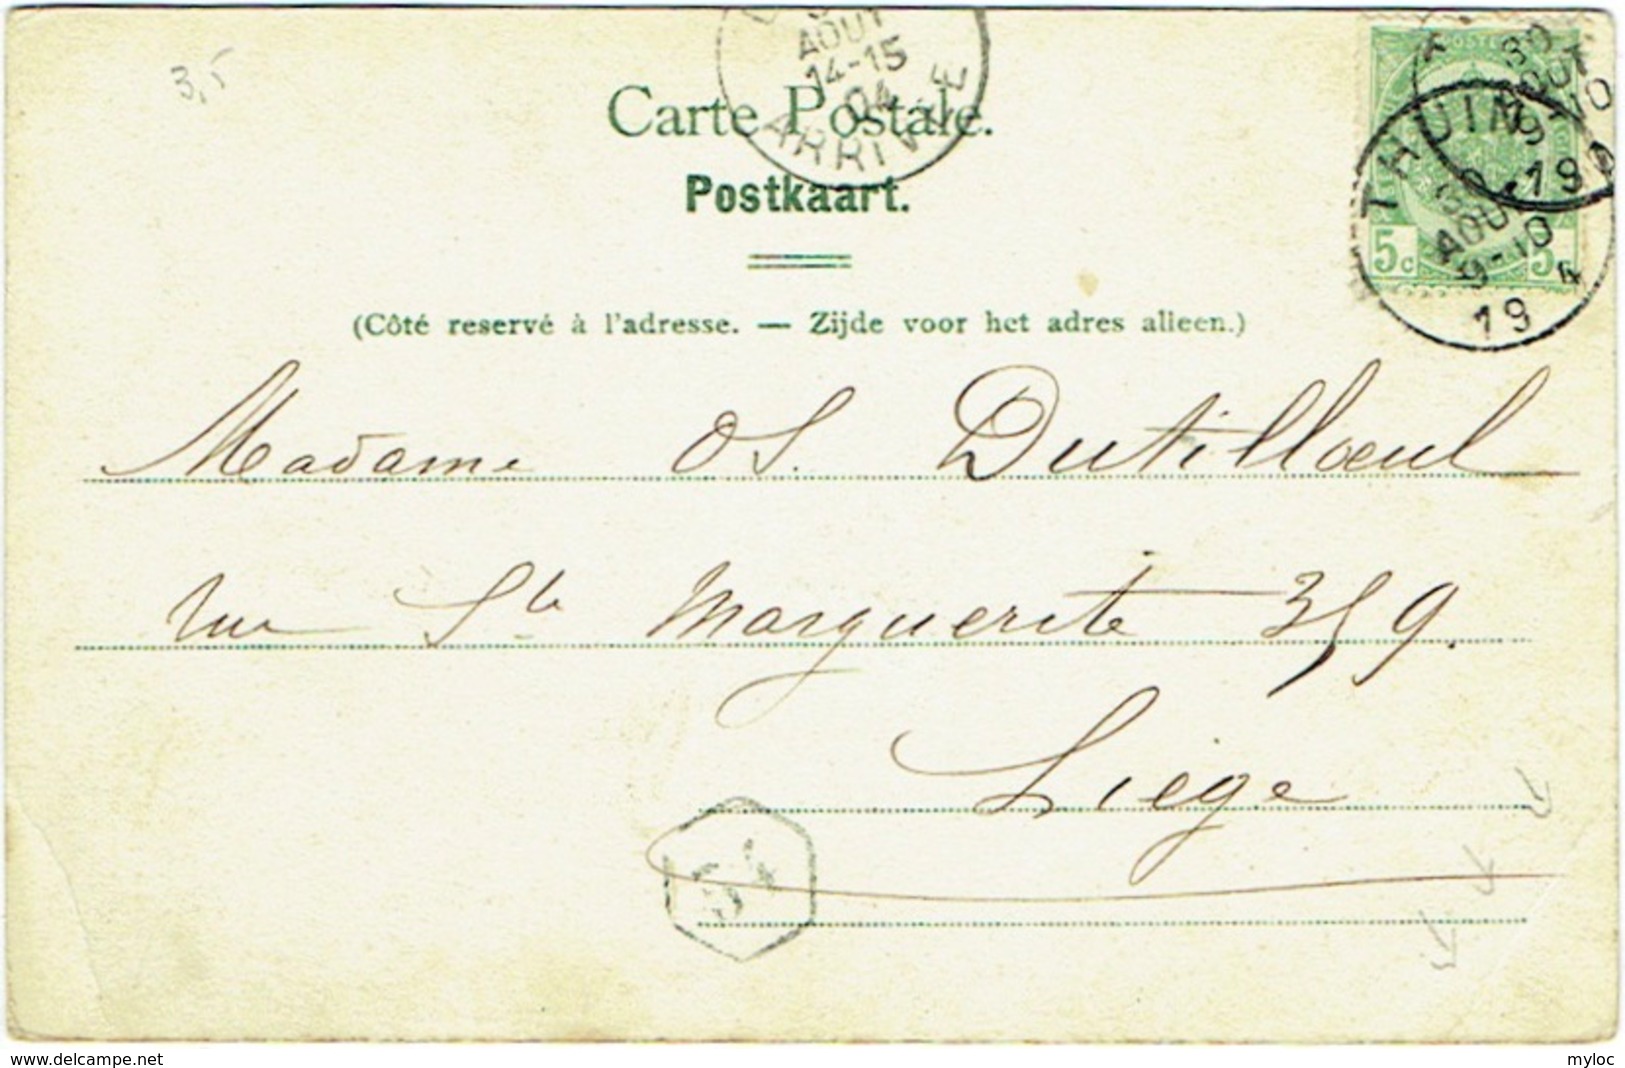 3,5
AOUT
14-15
04
ARRIVEE
Carte Postale.
Postkaart.
30
AOUT
9-10
19
THUIN
30
AOUT
9-10
19 4
5c 5c
(Côté reservé à l'adresse. — Zijde voor het adres alleen.)
Madame OS. Dutilloeul
rue Ste Marguerite 359.
Liège
54
www.delcampe.net
myloc